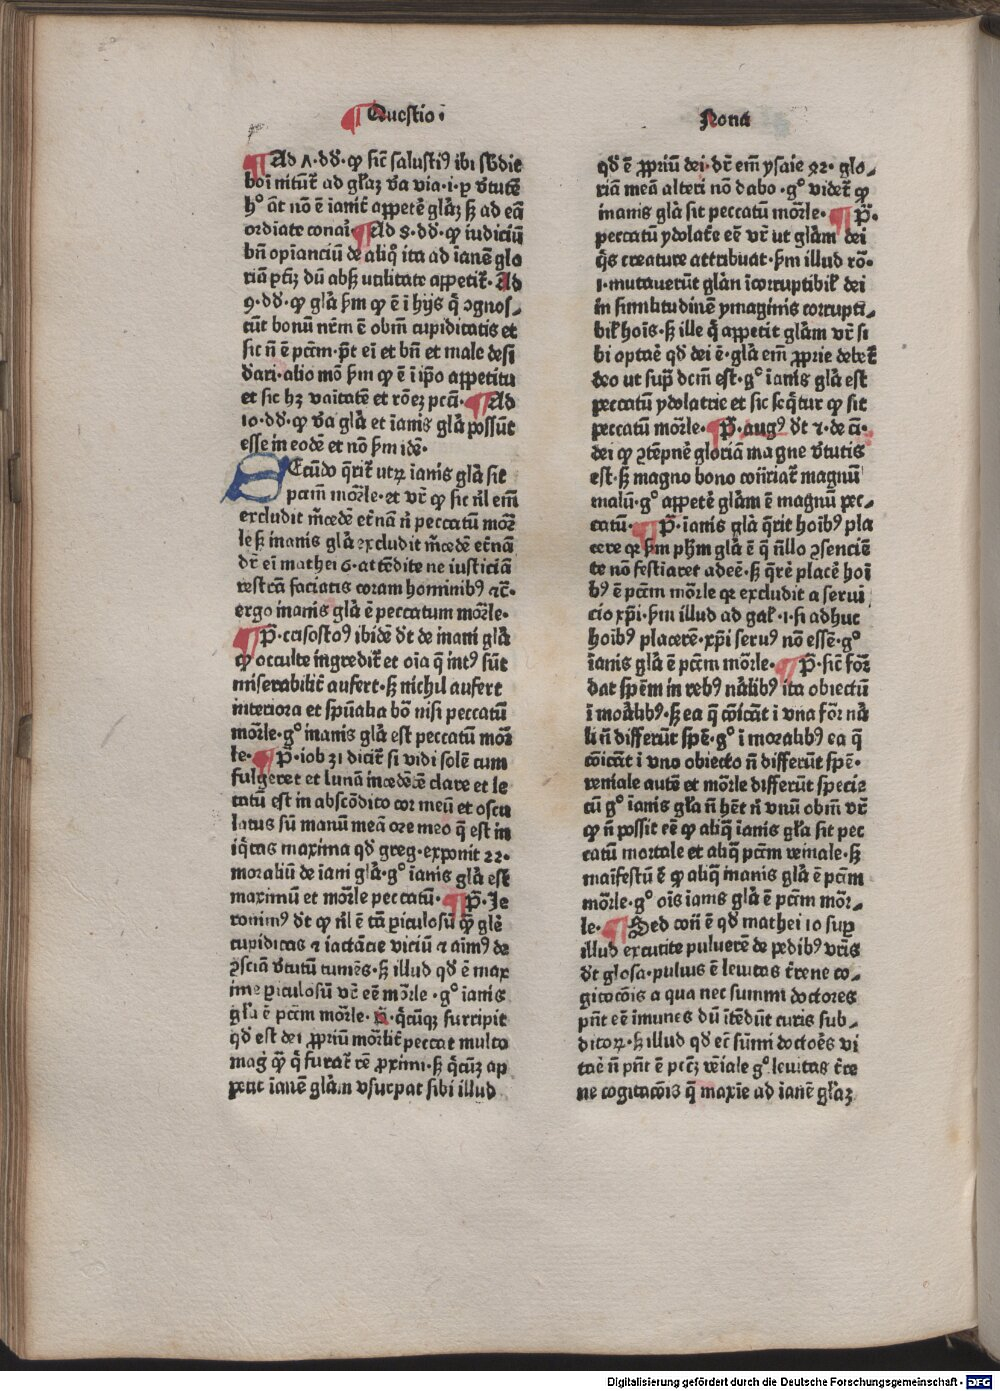 ¶ Questio·
Nona
¶ Ad ʌ·dd̄·ꝙ sic̄ salustiꝰ ibi sb̄dit
boī nitūt̄ ad gl̄aꝫ v̄a via·i·ꝑ v̄tutē
hͦ āt nō ē ianit̄ appetē gl̄aꝫ sꝫ ad eā
ordīate conaī ¶ Ad 8·dd̄·ꝙ iudiciū
bn̄ opīanciū de aliqͦ ita ad ianē glo
riā ꝑtīꝫ dū absqꝫ utilitate appetit̄· Ad
9·dd̄·ꝙ gl̄a ẜm ꝙ ē ī hijs q̄ ꝯgnos⸗
cūt bonū nr̄m ē obīm cupiditatis et
sic n̄ ē pctm̄·pt̄ eī et bn̄ et male desi
dari·alio mō ẜm ꝙ ē ī ip̄o appetitu
et sic hꝫ vaitatē et rōeꝫ pctī· ¶ Ad
10·dd̄·ꝙ v̄a gl̄a et ianis gl̄a possūt
esse in eodē et nō ẜm idē·
SEcūdo q̄rit̄ utꝝ ianis gl̄a sit
pctm̄ mor̄le·et vr̄ ꝙ sic nl̄ em̄
excludit m̄cedē etn̄ā n̄ peccatū mor̄
le sꝫ inanis gl̄a excludit m̄cedē etn̄ā
dr̄ eī mathei 6·attēdite ne iusticiā
vestrā faciatis coram hominibꝰ ⁊c̄·
ergo inanis gl̄a ē peccatum mor̄le·
¶ P̄·crisostoꝰ ibidē dt̄ de inani gl̄a
ꝙ occulte ingredit̄ et oīa q̄ intꝰ sūt
miserabilit̄ aufert·sꝫ nichil aufert
interiora et spūalia bō nisi peccatū
mor̄le·gͦ inanis gl̄a est peccatū mor̄
le· ¶ P̄·iob 31 dicit̄ si vidi solē cum
fulgeret et lunā incedētē clare et le
tatū est in abscōdito cor meū et oscu
latus sū manū meā ore meo q̄ est in
iq̄tas maxima qd̄ greg·exponit 22·
moraliū de iani gl̄a·gͦ ianis gl̄a est
maximū et mor̄le peccatū· ¶ P̄·Je
ronimꝰ dt̄ ꝙ nl̄ ē tā ꝑiculosū qꝫ gl̄e
cupiditas ⁊ iactācie viciū ⁊ aīmꝰ de
ꝯsciā v̄tutū tumēs·sꝫ illud qd̄ ē max
ime ꝑiculosū vr̄ eē mor̄le·gͦ ianis
gl̄a ē pctm̄ mor̄le· P̄·q̄cūqꝫ surripit
qd̄ est dei ꝓpriū mor̄lit̄ peccat multo
maḡ qꝫ q̄ furat̄ rē ꝓximi·sꝫ q̄cūꝫ ap
petit ianē gl̄am vsurpat sibi illud
qd̄ ē ꝓpriū dei·dr̄ em̄ ysaie 42·glo⸗
riā meā alteri nō dabo·gͦ videt̄ ꝙ
inanis gl̄a sit peccatū mor̄le· ¶ P̄·
peccatū ydolat̄e eē vr̄ ut gl̄am dei
q̄s creature attribuat·ẜm illud rō·
1·mutauerūt gl̄am īcorruptibil̄ dei
in similitudinē ymaginis corrupti⸗
bil̄ hoīs·sꝫ ille q̄ appetit gl̄am vr̄ si
bi optaē qd̄ dei ē·gl̄a em̄ ꝓprie debet̄
deo ut supͣ dcm̄ est·gͦ ianis gl̄a est
peccatū ydolatrie et sic seq̄tur ꝙ sit
peccatū mor̄le· ¶ P̄·augꝰ dt̄ ⁊·de ci·
dei ꝙ ꝯtēpnē gloriā magne v̄tutis
est·sꝫ magno bono cōtriat̄ magnū
malū·gͦ appetē gl̄am ē magnū pec⸗
catū· ¶ P̄·ianis gl̄a q̄rit hoībꝰ pla
cere qꝛ ẜm ph̄m gl̄a ē q̄ nullo ꝯsencien
te nō festiaret adeē·sꝫ q̄rē placē hoī
bꝰ ē pctm̄ mor̄le qꝛ excludit a serui
cio xp̄i·ẜm illud ad gal̄·1·si adhuc
hoībꝰ placerē·xp̄i seruꝰ nō essē·gͦ
ianis gl̄a ē pctm̄ mor̄le· ¶ P̄·sic̄ for̄
dat spēm in rebꝰ nāl̄ibꝰ ita obiectū
ī moāl̄ibꝰ·sꝫ ea q̄ cōicāt ī vna for̄ nā
li n̄ differūt spē·gͦ ī moralibꝰ ea q̄
cōicāt ī vno obiecto n̄ differūt spē·
veniale autē et mor̄le differūt specie
cū gͦ ianis gl̄a n̄ hēt n̄ vnū obīm vr̄
ꝙ n̄ possit eē ꝙ aliq̄ ianis gl̄a sit pec
catū mortale et aliq̄ pctm̄ veniale·sꝫ
maīfestū ē ꝙ aliq̄ inanis gl̄a ē pctm̄
mor̄le·gͦ oīs ianis gl̄a ē pctm̄ mor̄⸗
le· ¶ Sed cōn̄ ē qd̄ mathei 10 suꝑ
illud excutite puluerē de pedibꝰ vr̄is
dt̄ glosa·puluis ē leuitas tr̄ene co⸗
gitacōis a qua nec summi doctores
pn̄t eē imunes dū itēdūt curis sub⸗
ditoꝝ·sꝫ illud qd̄ et̄ sūmi doctoēs vi
taē n̄ pn̄t ē pctꝫ vēiale gͦ leuitas tr̄e
ne cogitacōis q̄ maxīe ad ianē gl̄aꝫ
Digitalisierung gefördert durch die Deutsche Forschungsgemeinschaft - DFG